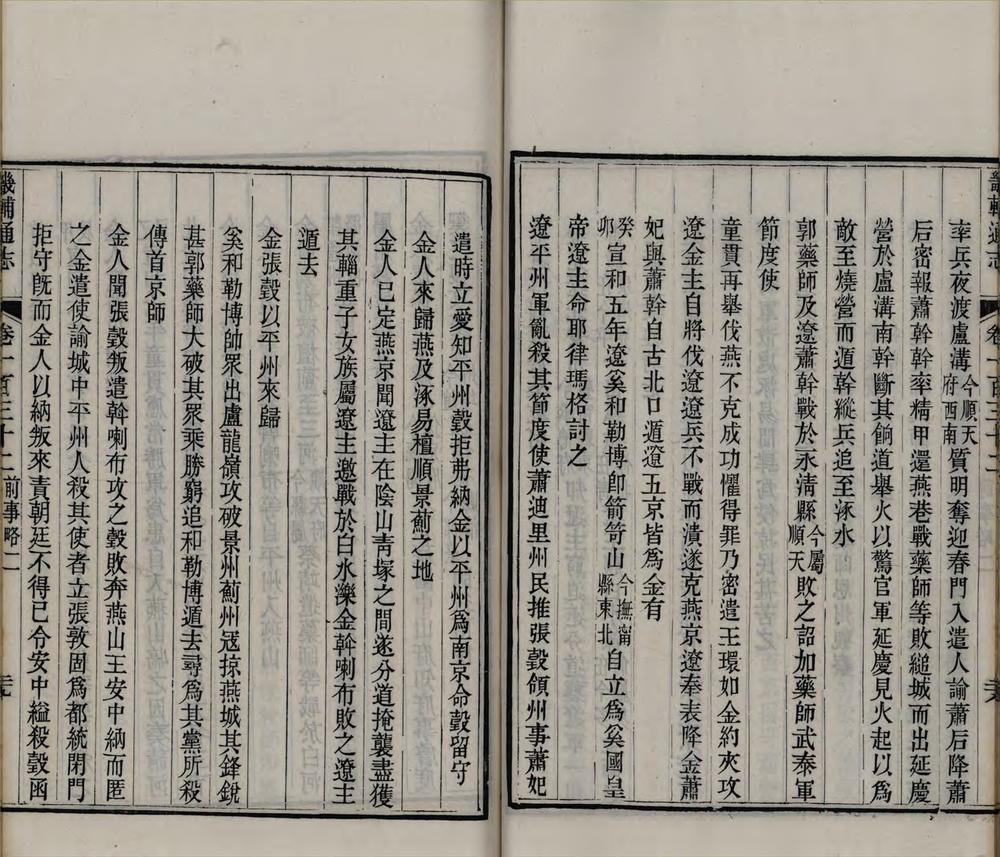 畿輔通志
卷一百三十二
率兵夜渡盧溝今順天府西南質明奪迎春門入遣人諭蕭后降蕭
后密報蕭幹幹率精甲還燕巷戰藥師等敗縋城而出延慶
營於盧溝南幹斷其餉道舉火以驚官軍延慶見火起以爲
敵至燒營而遁幹縱兵追至涿水
郭藥師及遼蕭幹戰於永淸縣今屬順天敗之詔加藥師武泰軍
節度使
童貫再舉伐燕不克成功懼得罪乃密遣王環如金約夾攻
遼金主自將伐遼遼兵不戰而潰遂克燕京遼奉表降金蕭
妃與蕭幹自古北口遁遼五京皆爲金有
癸卯宣和五年遼奚和勒博卽箭笴山今撫甯縣東北自立爲奚國皇
帝遼主命耶律瑪格討之
遼平州軍亂殺其節度使蕭迪里州民推張瑴領州事蕭妃
遣時立愛知平州瑴拒弗納金以平州爲南京命瑴留守
金人來歸燕及涿易檀順景薊之地
金人已定燕京聞遼主在陰山靑塚之間遂分道掩襲盡獲
其輜重子女族屬遼主邀戰於白水濼金斡喇布敗之遼主
遁去
金張瑴以平州來歸
奚和勒博帥眾出盧龍嶺攻破景州薊州寇掠燕城其鋒銳
甚郭藥師大破其眾乘勝窮追和勒博遁去尋爲其黨所殺
傳首京師
金人聞張瑴叛遣斡喇布攻之瑴敗奔燕山王安中納而匿
之金遣使諭城中平州人殺其使者立張敦固爲都統閉門
拒守旣而金人以納叛來責朝廷不得已令安中縊殺瑴函
畿輔通志
卷一百三十二 前事略二